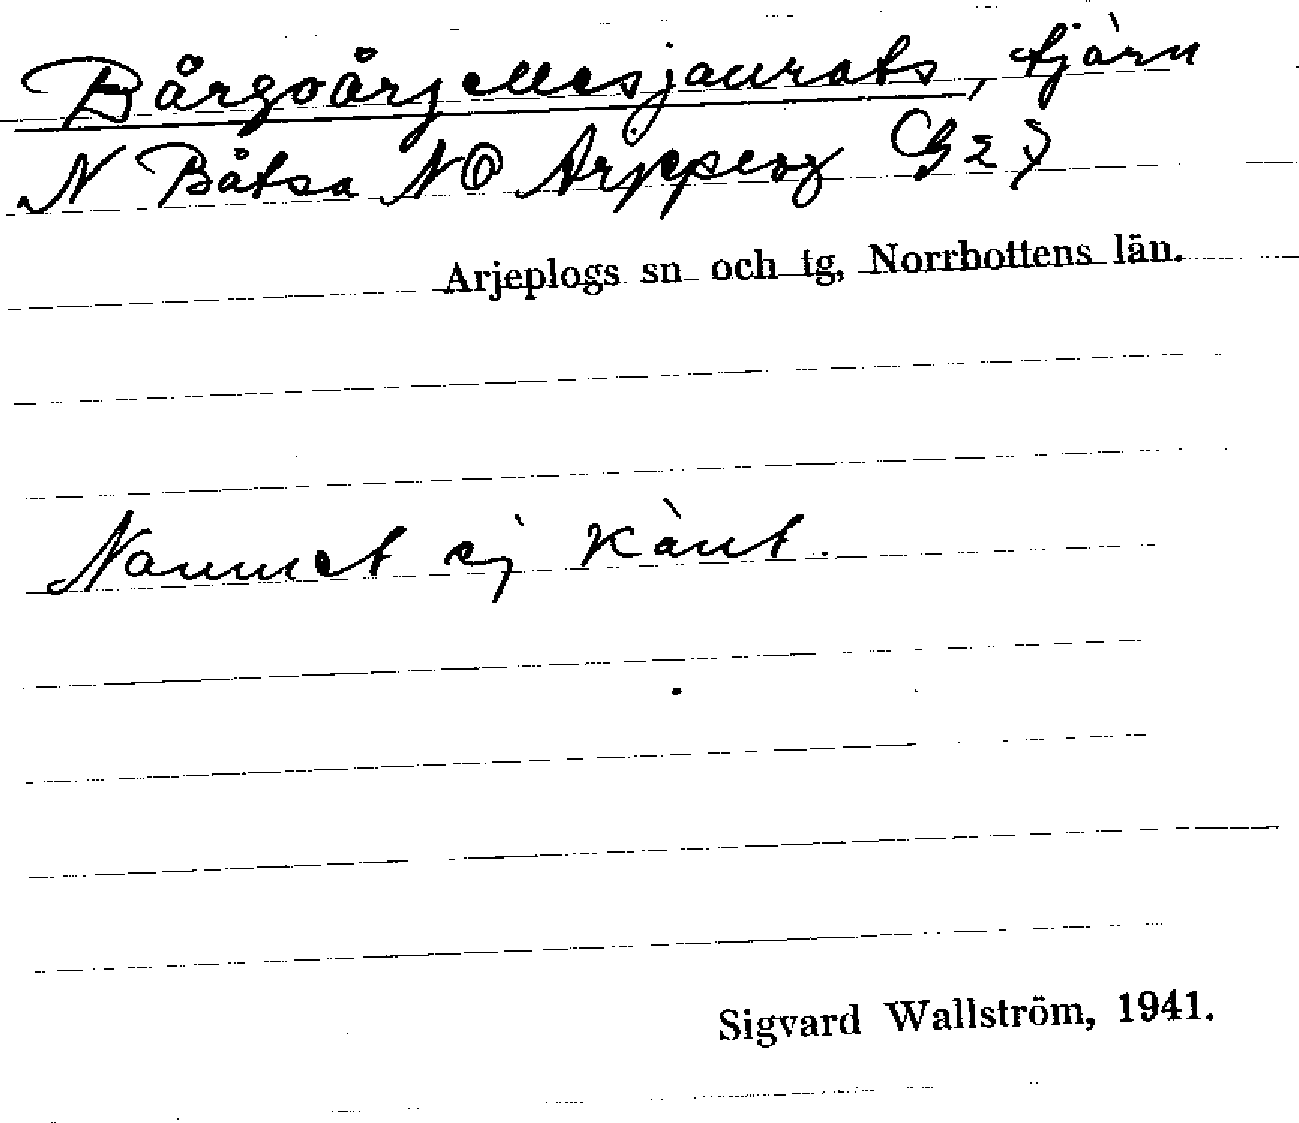 Bårgoårjellesjaurats, tjärn
N Båtsa NO Arjeplog G 27
Arjeplogs sn och tg, Norrbottens län.
Namnet ej känt.
Sigvard Wallström, 1941.